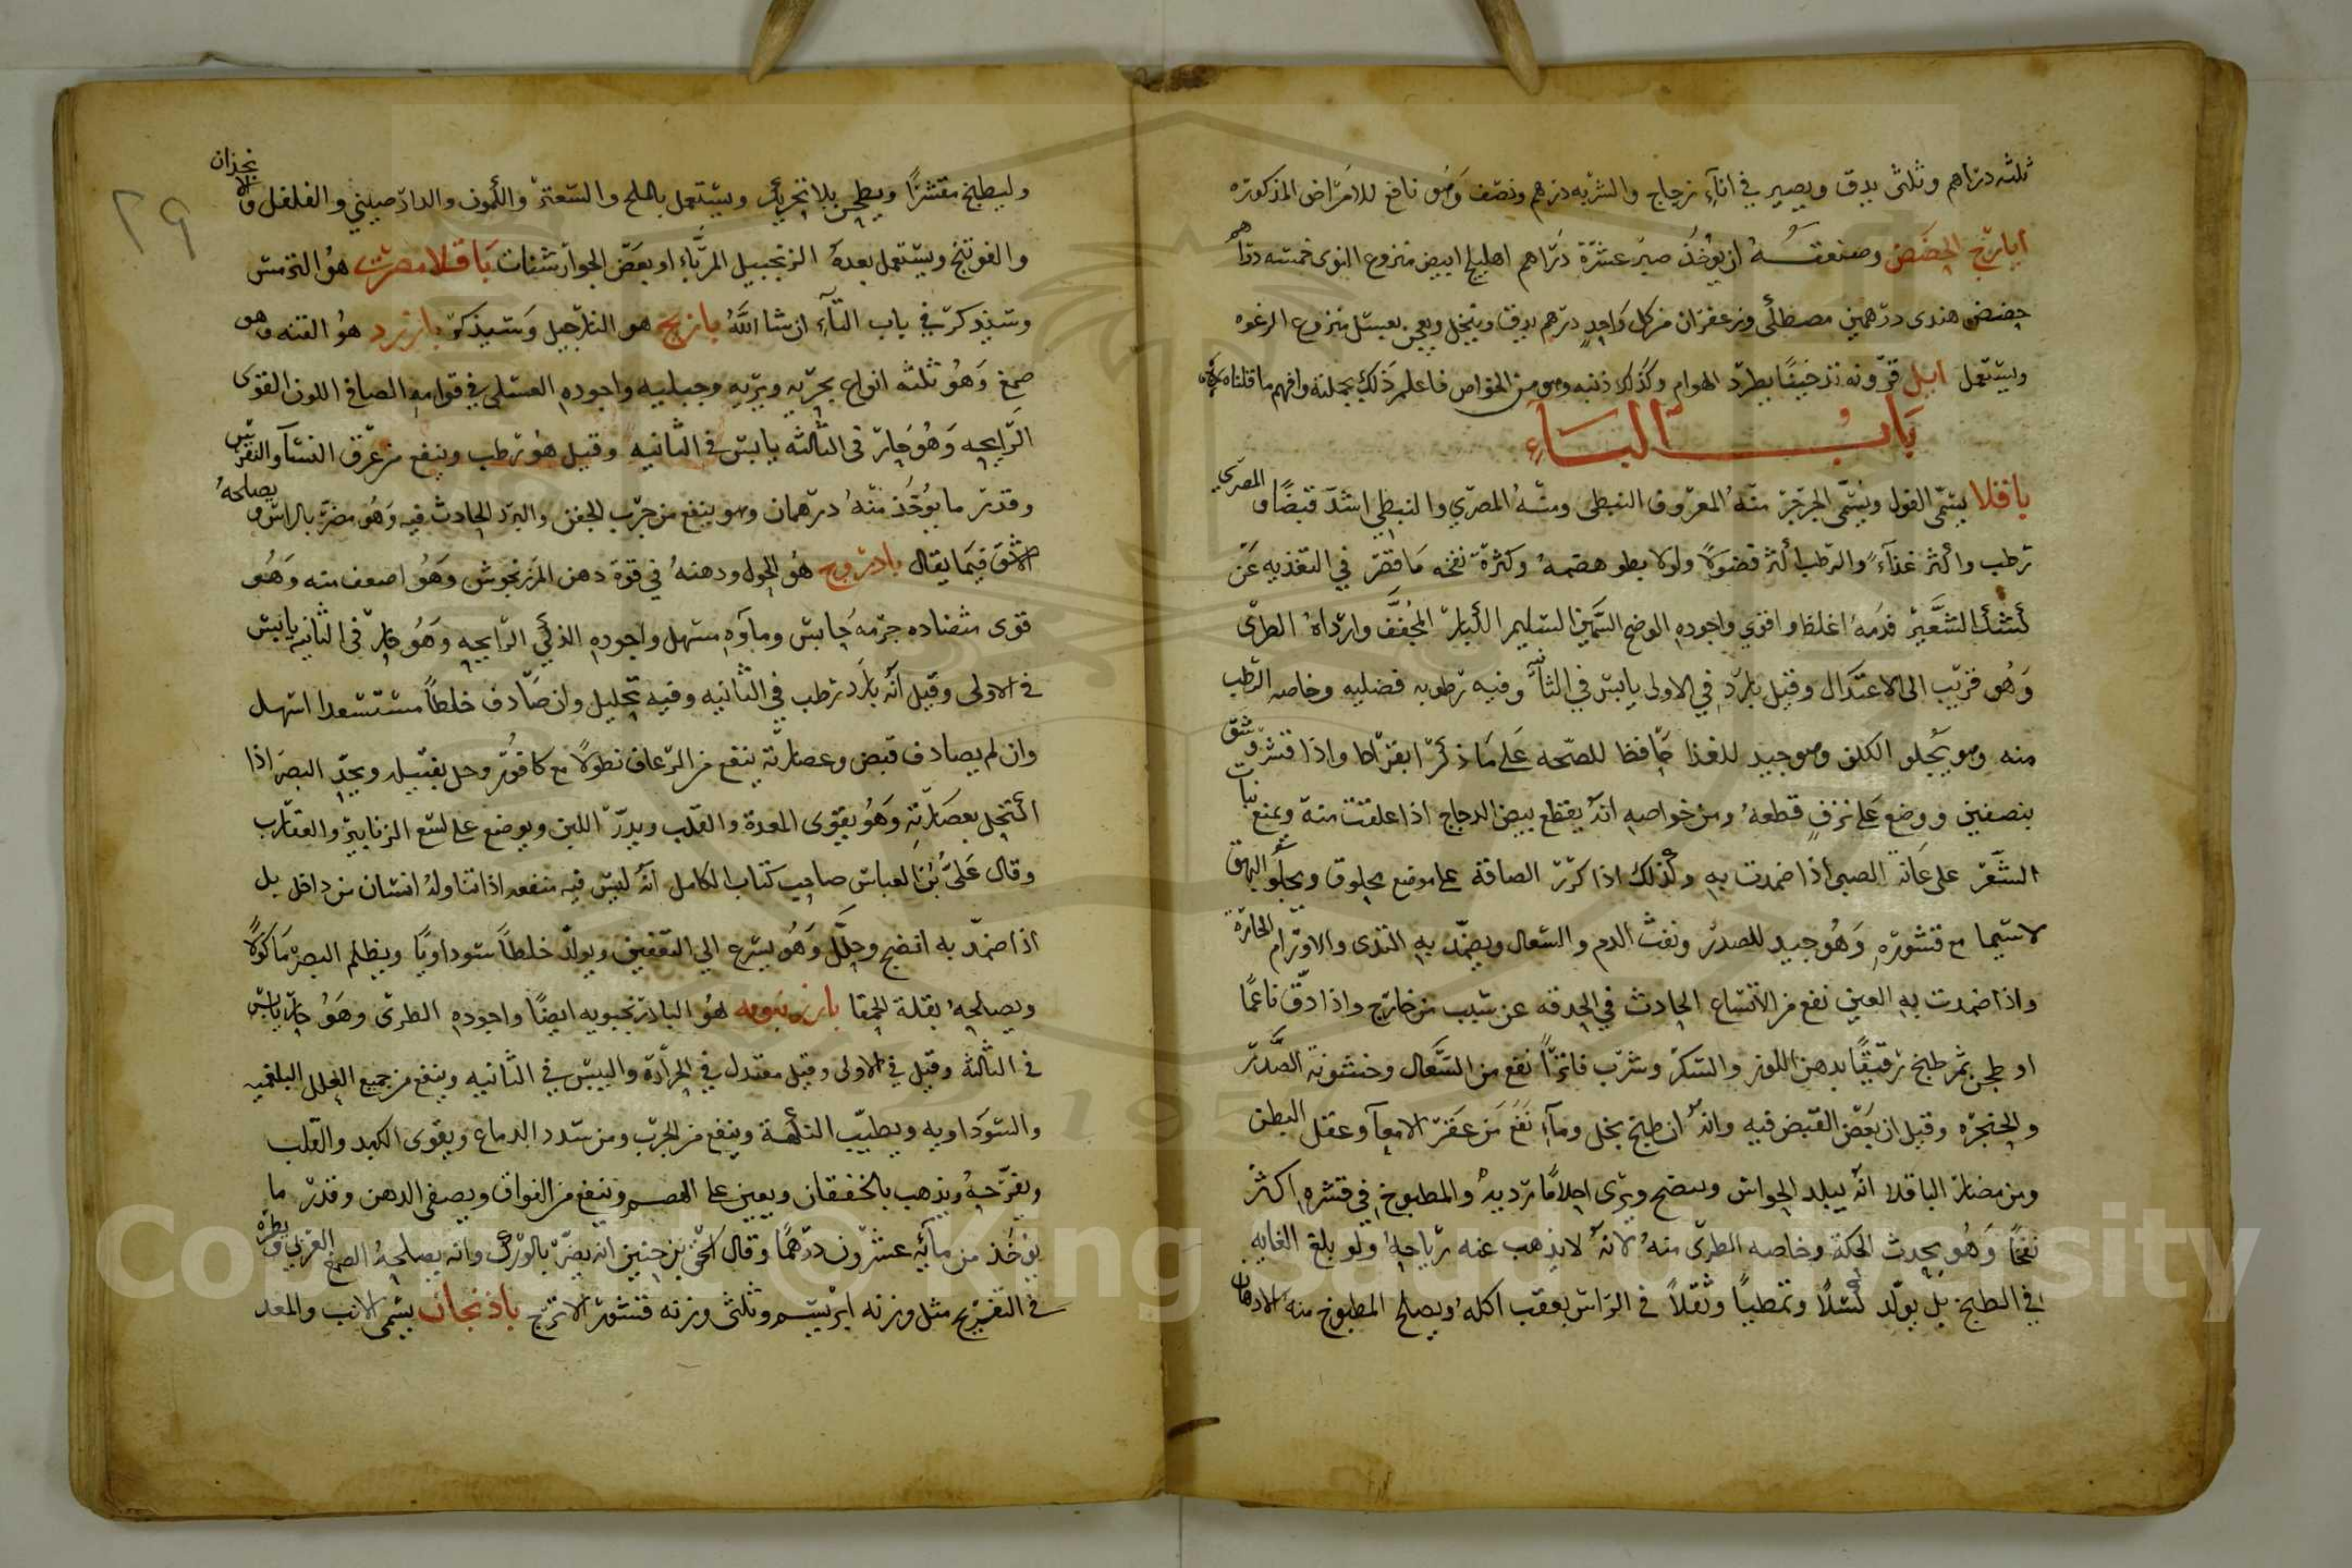 ثلثه دراهم وثلثى يدق ويصير في انآء زجاج والشربه درهم ونصف وهو نافع للامراض المذكوره
ايارج الحضض وصنعته ان يؤخذ صبر عشرة دراهم اهليلج ابيض منزوع النوى خمسه دراهم
حضض هندى درهمين مصطكى وزعفران من كل واحد درهم يدق وينخل ويعجن بعسل منزوع الرغوه
ويستعمل ايل قرونه تدخينًا يطرد الهوام وكذلك ذنبه وهو من الخواص فاعلم ذلك بجملته وافهم ما قلناه
بَابُ البَاءِ
باقلا يسمّى الفول ويسمّى الجرجر منه المعروف النبطى ومنه المصري والنبطي اشد قبضًا والمصري
ترطب واكثر غذآءً والرطب اكثر فضولًا ولولا بطو هضمه وكثرة نفخه ما قصّر في التغذيه عن
كشك الشعير فدمه اغلظ واقوي واجوده السمين السليم الكبار المجفف وارداه الطرى
وهو قريب الى الاعتدال وقيل بارد في الاولى يابس في الثانيه وفيه رطوبه فضليه وخاصه الرطب
منه وهو يجلو الكلف وهو جيد للغذا حافظا للصحه على ما ذكر ابقراط واذا قشر وشق
بنصفين ووضع على نزف قطعه ومن خواصه انه يقطع بيض الدجاج اذا علفت منه ويمنع نبات
الشعر على عانة الصبى اذا ضمدت به وكذلك اذا كرر الصاقة على موضع محلوق ويجلو البهق
لاسيما مع قشوره وهو جيد للصدر ونفث الدم والسعال ويضمد به الثدى والاورام الحارة
واذا ضمدت به العين نفع من الاتساع الحادث في الحدقه عن سبب من خارج واذا دق ناعمًا
او طحن ثم طبخ رقيقًا بدهن اللوز والسكر وشرب فاترًا نفع من السعال وخشونة الصدر
والحنجره وقيل ان بعض القبض فيه وانه ان طبخ بخل ومآء نفع من عقر الامعآ وعقل البطن
ومن مضار الباقلا انه يبلد الحواس ويرى احلامًا رديه والمطبوخ في قشره اكثر
نفخًا وهو يحدث الحكة وخاصه الطرى منه لانه لا يذهب عنه رياحه ولو بلغ الغايه
في الطبخ بل يولد كسلًا وتمطيًا وثقلًا في الراس بعقب اكله ويصلح المطبوخ منه الادهان
٢٩
وليطبخ مقشرًا ويطحن بلا تحريك ويستعمل بالملح والسعتر والكمون والدارصيني والفلفل والانجذان
والفوتنج ويستعمل بعده الزنجبيل المربّاء او بعض الجوارشنات باقلا مصرى هو الترمس
وسيذكر في باب التآء ان شا الله بارنج هو النارجيل وسيذكر بارزد هو القنه وهو
صمغ وهو ثلثه انواع بحريه وبريه وجبليه واجوده العسلى في قوامه الصافى اللون القوى
الرايحه وهو حار فى الثالثه يابس في الثانيه وقيل هو رطب وينفع من عرق النسآ والنقرس
وقدر ما يؤخذ منه درهمان وهو ينفع من جرب الجفن والبرد الحادث فيه وهو مضر بالراس ويصلحه
الاشق فيما يقال بادروج هو الحوك ودهنه في قوة دهن المرزنجوش وهو اضعف منه وهو
قوى متضاده جرمه حابس وماؤه مسهل واجوده الذكي الرايحه وهو حار فى الثانيه يابس
فى الاولى وقيل انه بارد رطب في الثانيه وفيه تحليل وان صادف خلطًا مستسعدا اسهل
وان لم يصادف قبض وعصارته ينفع من الرعاف نطولًا مع كافور وخل بفتيله ويحد البصر اذا
اكتحل بعصارته وهو يقوى المعدة والقلب ويدر اللبن ويوضع على لسع الزنابير والعقارب
وقال على بن العباس صاحب كتاب الكامل انه ليس فيه منفعه اذا تناوله انسان من داخل بل
اذا ضمد به انضج وحلل وهو يسرع الى التعفين ويولد خلطًا سوداويًا ويظلم البصر مأكولًا
ويصلحه بقلة الحمقا بارزنبويه هو البادرنجبويه ايضًا واجوده الطرى وهو حار يابس
فى الثالثة وقيل في الاولى وقيل معتدل في الحرارة واليبس في الثانيه وينفع من جميع العلل البلغميه
والسوداويه ويطيب النكهة وينفع من الجرب ومن سدد الدماغ ويقوى الكبد والقلب
ويفرحه ويذهب بالخفقان ويعين على الهضم وينفع من الفواق ويصفى الدهن وقدر ما
يؤخذ من مآئه عشرون درهمًا وقال اسحق بن حنين انه يضر بالورك وانه يصلحه الصمغ العربى
فى التفريح مثل وزنه ابريسم وثلثى وزنه قشور الاترج باذنجان يسمى الانب والمعد